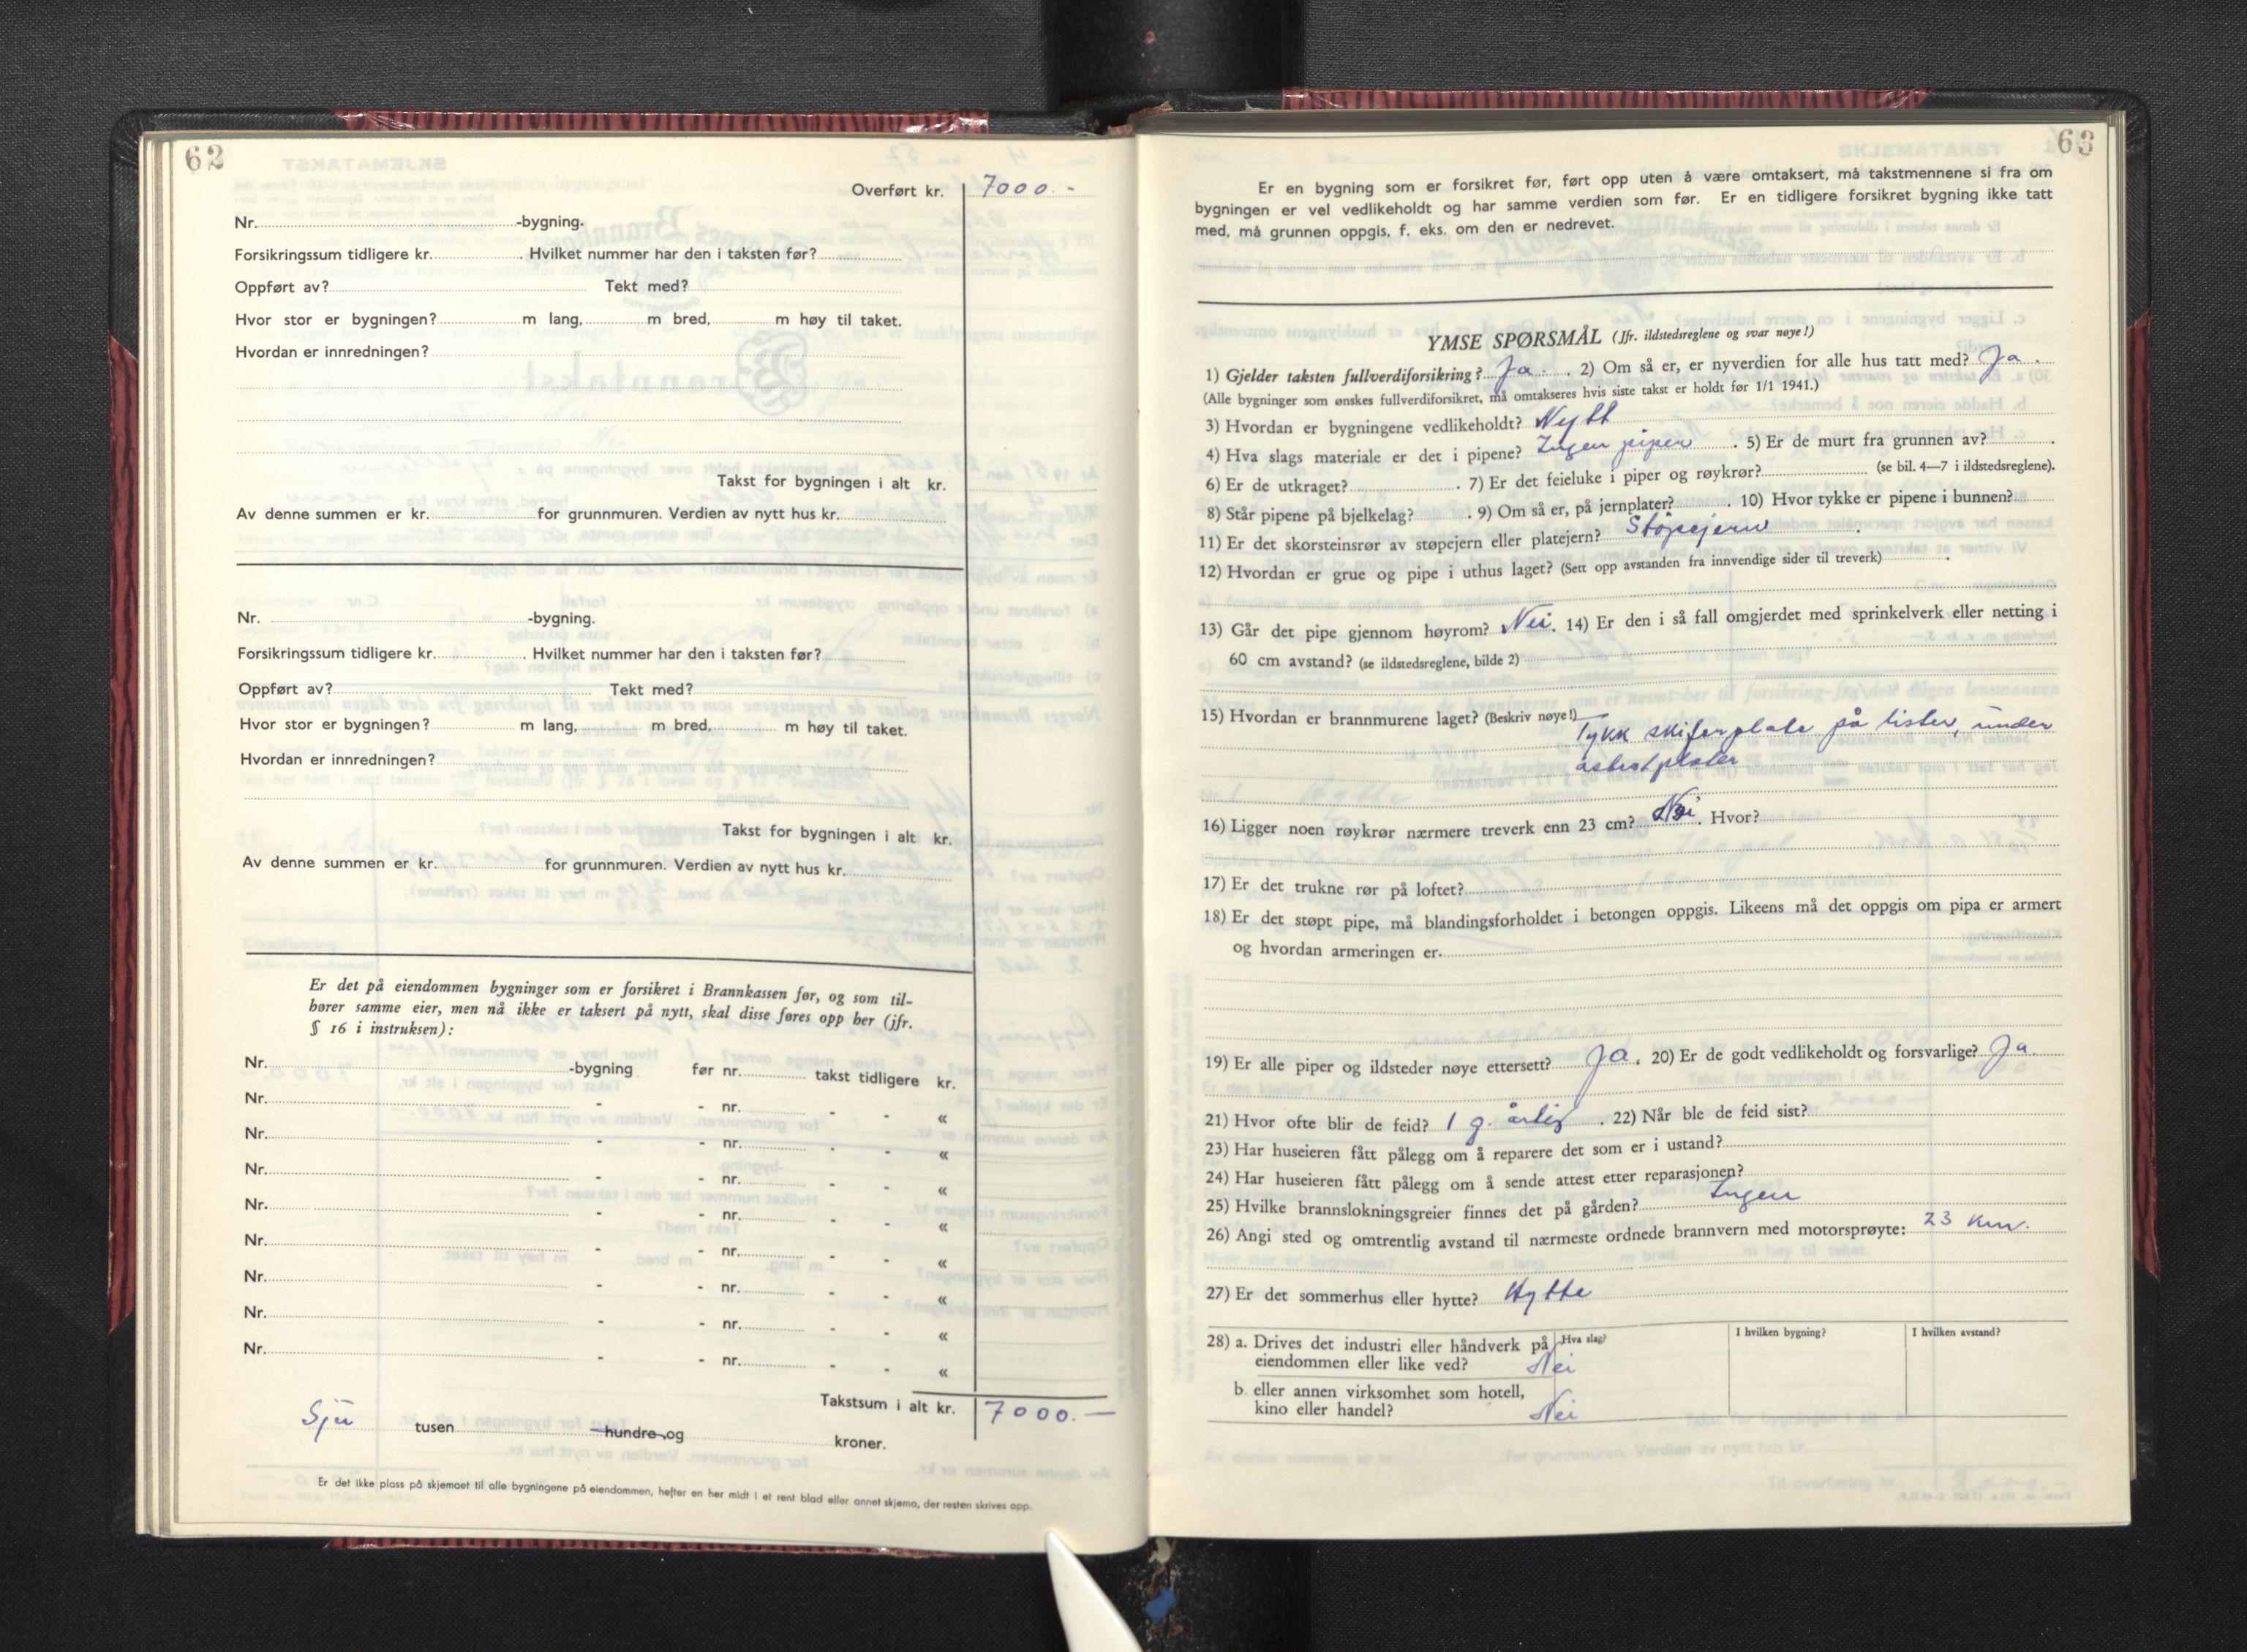 62
Overført kr. 7000.-
Nr. -bygning.
Forsikringssum tidligere kr. . Hvilket nummer har den i taksten før?
Oppført av? Tekt med?
Hvor stor er bygningen? m lang, m bred, m høy til taket.
Hvordan er innredningen?
Takst for bygningen i alt kr.
Av denne summen er kr. for grunnmuren. Verdien av nytt hus kr.
Nr. -bygning.
Forsikringssum tidligere kr. . Hvilket nummer har den i taksten før?
Oppført av? Tekt med?
Hvor stor er bygningen? m lang, m bred, m høy til taket.
Hvordan er innredningen?
Takst for bygningen i alt kr.
Av denne summen er kr. for grunnmuren. Verdien av nytt hus kr.
Er det på eiendommen bygninger som er forsikret i Brannkassen før, og som til-
hører samme eier, men nå ikke er taksert på nytt, skal disse føres opp her (jfr.
§ 16 i instruksen):
Nr. -bygning før nr. takst tidligere kr.
Nr. - - nr. - - «
Nr. - - nr. - - «
Nr. - - nr. - - «
Nr. - - nr. - - «
Nr. - - nr. - - «
Nr. - - nr. - - «
Nr. - - nr. - - «
Nr. - - nr. - - «
Takstsum i alt kr. 7000.—
Sju tusen hundre og kroner.
Er det ikke plass på skjemaet til alle bygningene på eiendommen, hefter en her midt i et rent blad eller annet skjema, der resten skrives opp.
63
Er en bygning som er forsikret før, ført opp uten å være omtaksert, må takstmennene si fra om
bygningen er vel vedlikeholdt og har samme verdien som før. Er en tidligere forsikret bygning ikke tatt
med, må grunnen oppgis, f. eks. om den er nedrevet.
YMSE SPØRSMÅL (Jfr. ildstedsreglene og svar nøye!)
1) Gjelder taksten fullverdiforsikring? Ja. . 2) Om så er, er nyverdien for alle hus tatt med? Ja .
(Alle bygninger som ønskes fullverdiforsikret, må omtakseres hvis siste takst er holdt før 1/1 1941.)
3) Hvordan er bygningene vedlikeholdt? Nytt
4) Hva slags materiale er det i pipene? Ingen piper . 5) Er de murt fra grunnen av? .
6) Er de utkraget? . 7) Er det feieluke i piper og røykrør? (se bil. 4—7 i ildstedsreglene).
8) Står pipene på bjelkelag? . 9) Om så er, på jernplater? . 10) Hvor tykke er pipene i bunnen?
11) Er det skorsteinsrør av støpejern eller platejern? Støpejern .
12) Hvordan er grue og pipe i uthus laget? (Sett opp avstanden fra innvendige sider til treverk) .
13) Går det pipe gjennom høyrom? Nei. 14) Er den i så fall omgjerdet med sprinkelverk eller netting i
60 cm avstand? (se ildstedsreglene, bilde 2)
15) Hvordan er brannmurene laget? (Beskriv nøye!)
Tykk skiferplate på lister, under
asbestplater
16) Ligger noen røykrør nærmere treverk enn 23 cm? Nei. Hvor?
17) Er det trukne rør på loftet?
18) Er det støpt pipe, må blandingsforholdet i betongen oppgis. Likeens må det oppgis om pipa er armert
og hvordan armeringen er.
19) Er alle piper og ildsteder nøye ettersett? Ja . 20) Er de godt vedlikeholdt og forsvarlige? Ja
21) Hvor ofte blir de feid? 1 g. årlig . 22) Når ble de feid sist?
23) Har huseieren fått pålegg om å reparere det som er i ustand?
24) Har huseieren fått pålegg om å sende attest etter reparasjonen?
25) Hvilke brannslokningsgreier finnes det på gården? Ingen
26) Angi sted og omtrentlig avstand til nærmeste ordnede brannvern med motorsprøyte: 23 km.
27) Er det sommerhus eller hytte? Hytte
28) a. Drives det industri eller håndverk på Hva slag? I hvilken bygning? I hvilken avstand?
eiendommen eller like ved? Nei
b. eller annen virksomhet som hotell,
kino eller handel? Nei